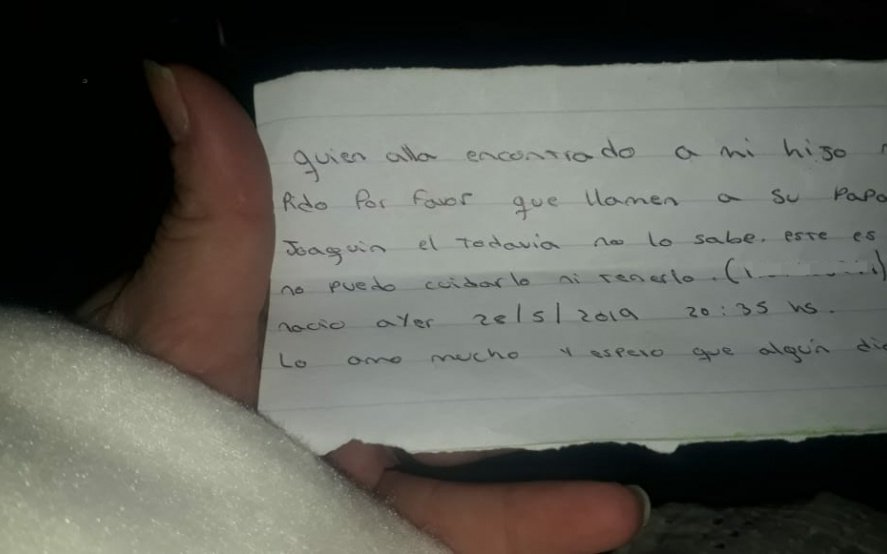 quien alla encontrado a mi hijo
Pido Por favor que llamen a su Papa
Joaquin el Todavia no lo sabe. este es
no puedo cuidarlo ni tenerlo. (1
nacio ayer 28/5/2019 20:35 hs.
Lo amo mucho y espero que algún dia